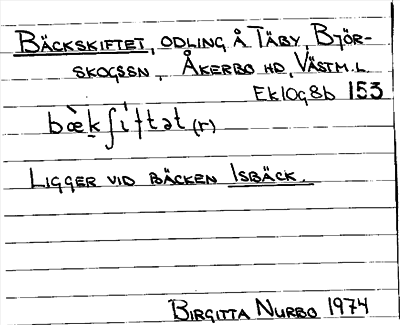 BÄCKSKIFTET, ODLING Å TÄBY, BJÖR-
SKOGSSN, ÅKERBO HD, VÄSTM.L.
Ek10g8b 153
bæ̀k̠ʃíftət (r)
LIGGER VID BÄCKEN ISBÄCK.
BIRGITTA NURBO 1974